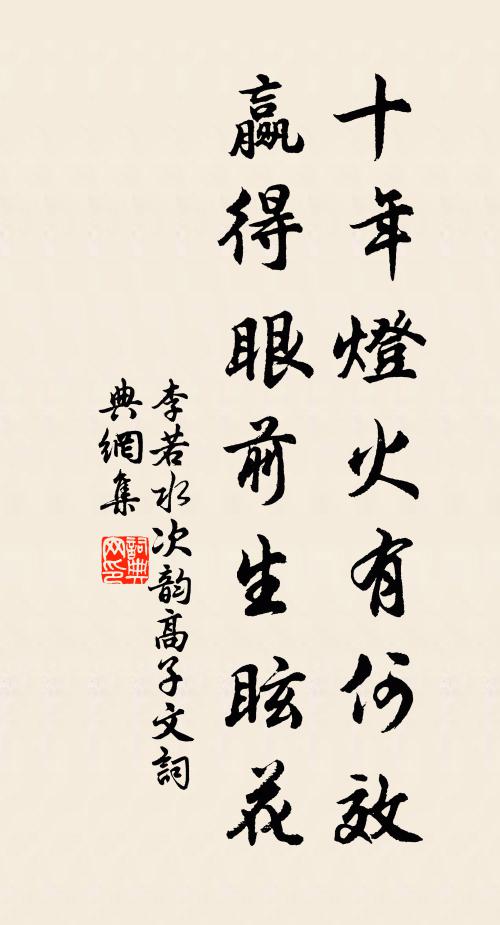 十年燈火有何效
贏得眼前生眩花
李若水次韵高子文詞
典網集
詞典网印